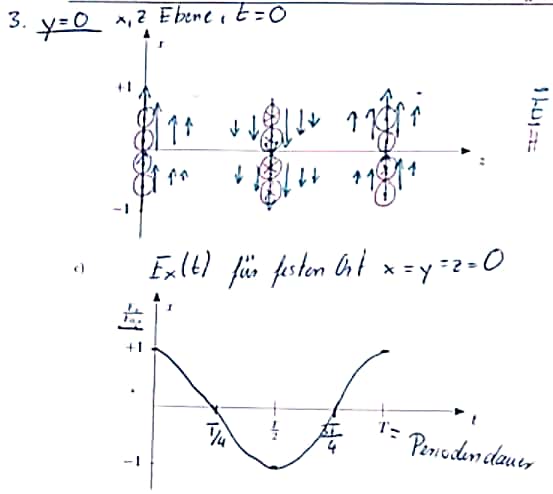 3. y=0 x,z Ebene, t=0
x
+1
z
-1
c) Ex(t) für festen Ort x=y=z=0
x
+1
T/4
T/2
3T/4
T = Periodendauer
t
-1